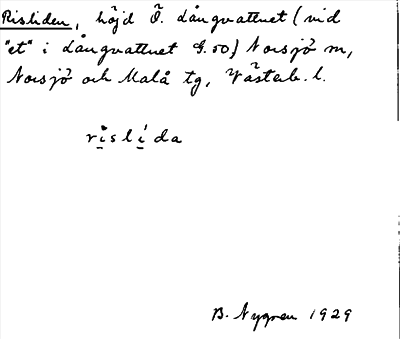 Risliden, höjd Ö. Långvattnet (vid
"et" i Långvattnet G.50) Norsjö m,
Norsjö och Malå tg, Västerb. l.
rislida
B. Nygren 1929